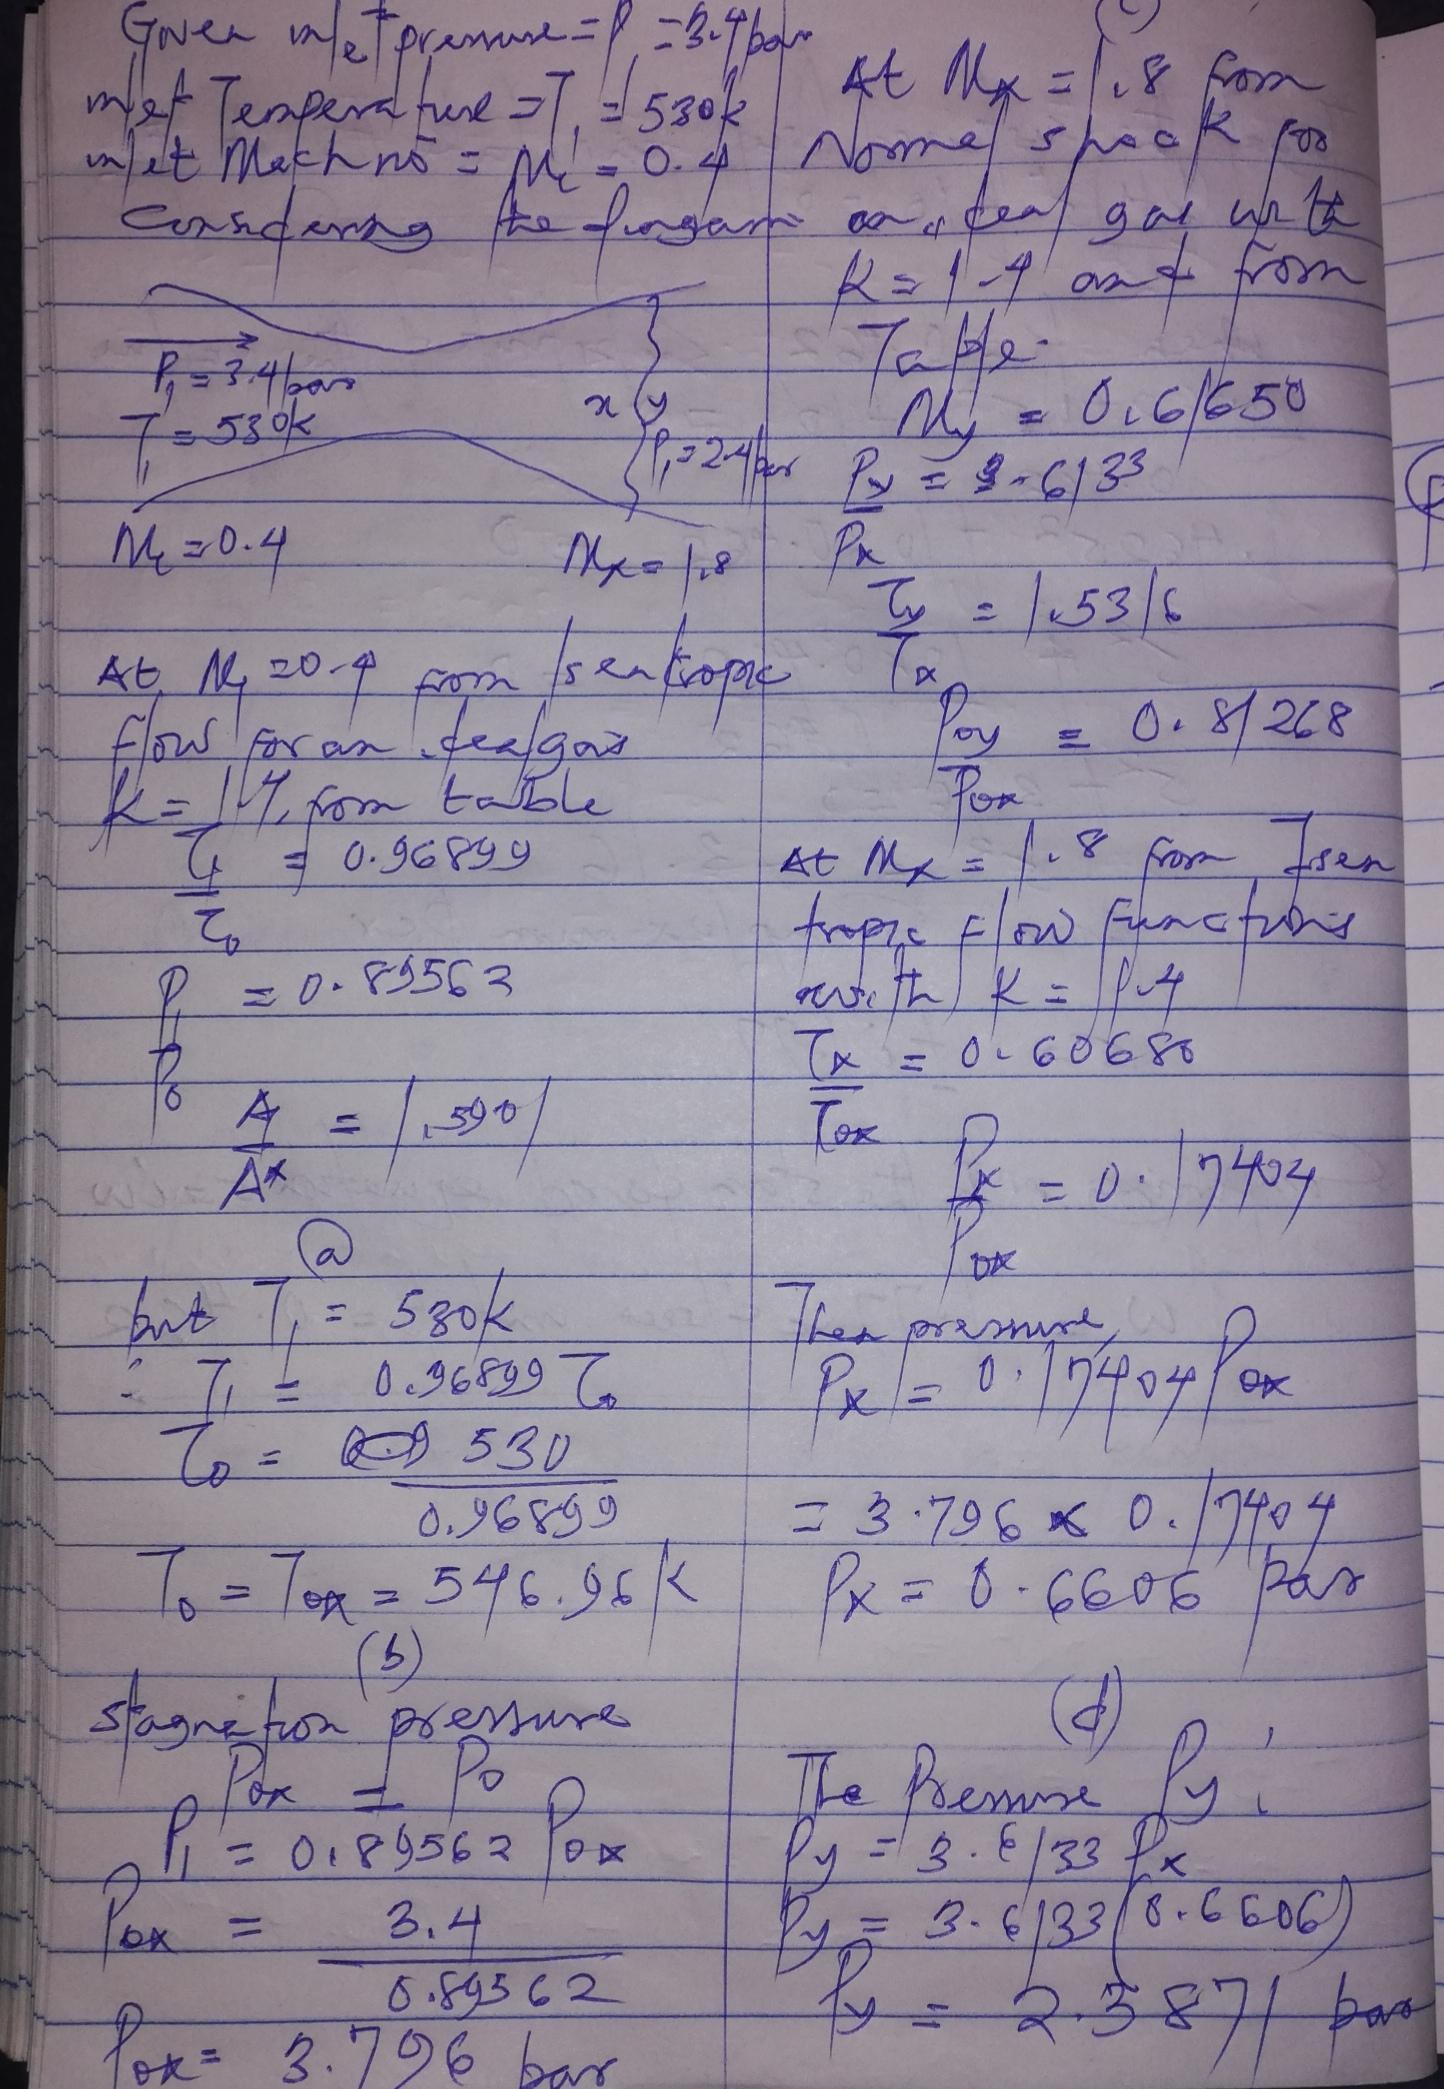 Given inlet pressure = P₁ = 3.4 bar
inlet Temperature = T₁ = 530k
inlet Mach no = M₁ = 0.4
Considering the
P₁ = 3.4 bar
T₁ = 530k
x y
P₁ = 2.4 bar
M₁ = 0.4
Mx = 1.8
At M₁ = 0.4 from Isentropic
flow for an ideal gas
K = 1.4, from table
T₁/T₀ = 0.96899
P₁/P₀ = 0.89562
A/A* = 1.5901
(a)
but T₁ = 530k
∴ T₁ = 0.96899 T₀
T₀ = 530/0.96899
T₀ = Tox = 546.96k
(b)
Stagnation pressure
Pox = P₀
P₁ = 0.89562 Pox
Pox = 3.4/0.89562
Pox = 3.796 bar
(c)
At Mx = 1.8 from
Normal shock for
an ideal gas with
K = 1.4 and from
Table
My = 0.61650
Py/Px = 3.6133
Ty/Tx = 1.5316
Poy/Pox = 0.81268
At Mx = 1.8 from Isen
tropic Flow Functions
with K = 1.4
Tx/Tox = 0.60680
Px/Pox = 0.17404
Then pressure,
Px = 0.17404 Pox
= 3.796 x 0.17404
Px = 0.6606 bar
(d)
The Pressure Py ;
Py = 3.6133 Px
Py = 3.6133 (0.6606)
Py = 2.3871 bar